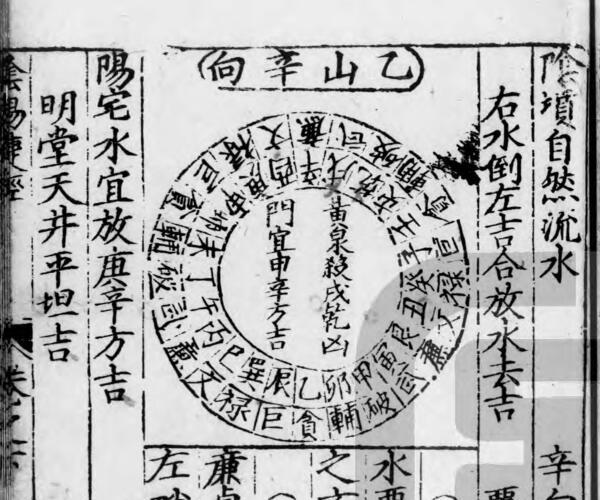 陰墳自然流水
右水倒左吉合放水去吉
乙山辛向
黃泉殺戌乾凶
門宜申辛方吉
壬子癸丑艮寅甲卯乙辰巽巳丙午丁未坤申庚酉辛戌乾亥
貪巨祿文廉武破輔貪巨祿文廉武破輔貪巨祿文廉武破輔
陽宅水宜放庚辛方吉
明堂天井平坦吉
陰陽捷徑
卷之六
辛
水要
之
廉貞
左